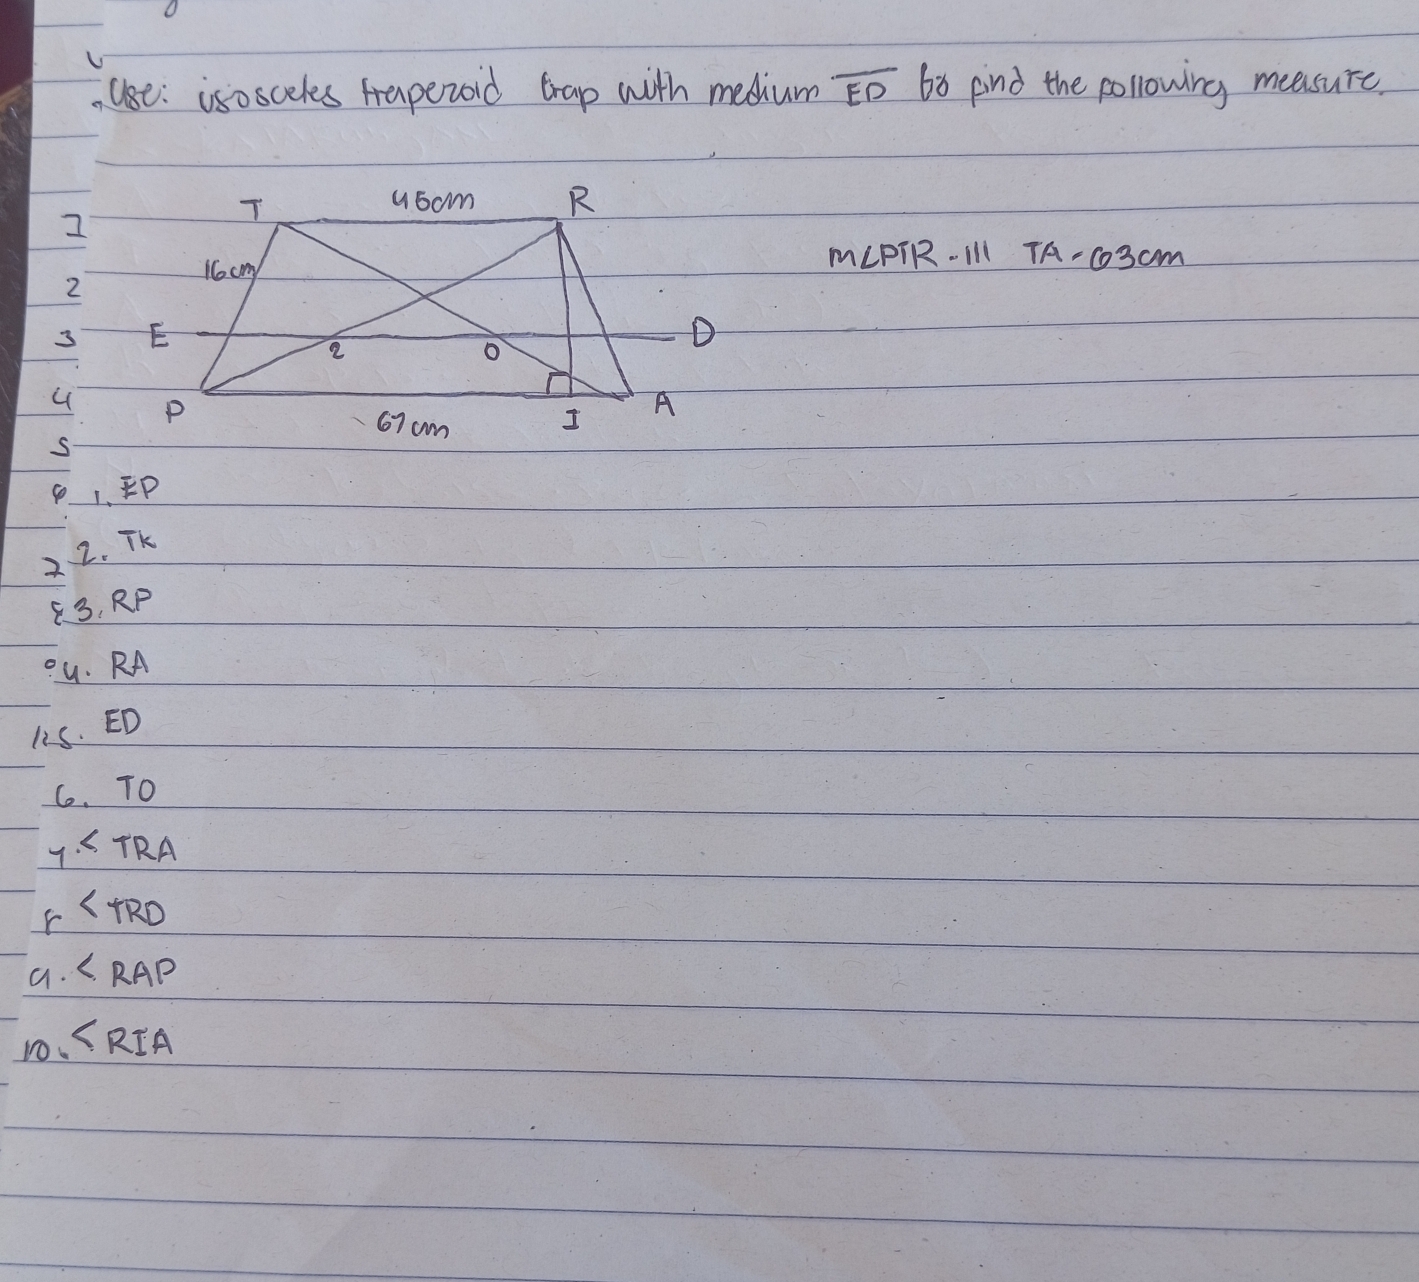 Use: isosceles trapezoid trap with medium ED to find the following measure.
T 45cm R
1
m<PTR-111 TA-63cm
16cm
2
3 E D
2 O
4 P I A
67cm
5
6 1. EP
7 2. TK
8 3. RP
9 4. RA
5. ED
6. TO
7. < TRA
8 < TRD
9. < RAP
10. < RIA